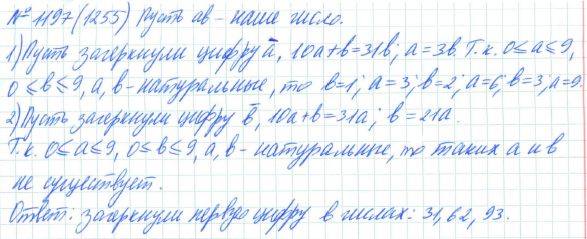 № 1197 (1255) Пусть ав - наше число.
1) Пусть зачеркнули цифру а, 10а+в=31в; а=3в. Т.к. 0≤а≤9,
0≤в≤9, а, в - натуральные, то в=1; а=3; в=2; а=6; в=3, а=9.
2) Пусть зачеркнули цифру в, 10а+в=31а; в=21а.
Т.к. 0≤а≤9, 0≤в≤9, а, в - натуральные, то таких а и в
не существует.
Ответ: зачеркнули первую цифру в числах: 31, 62, 93.